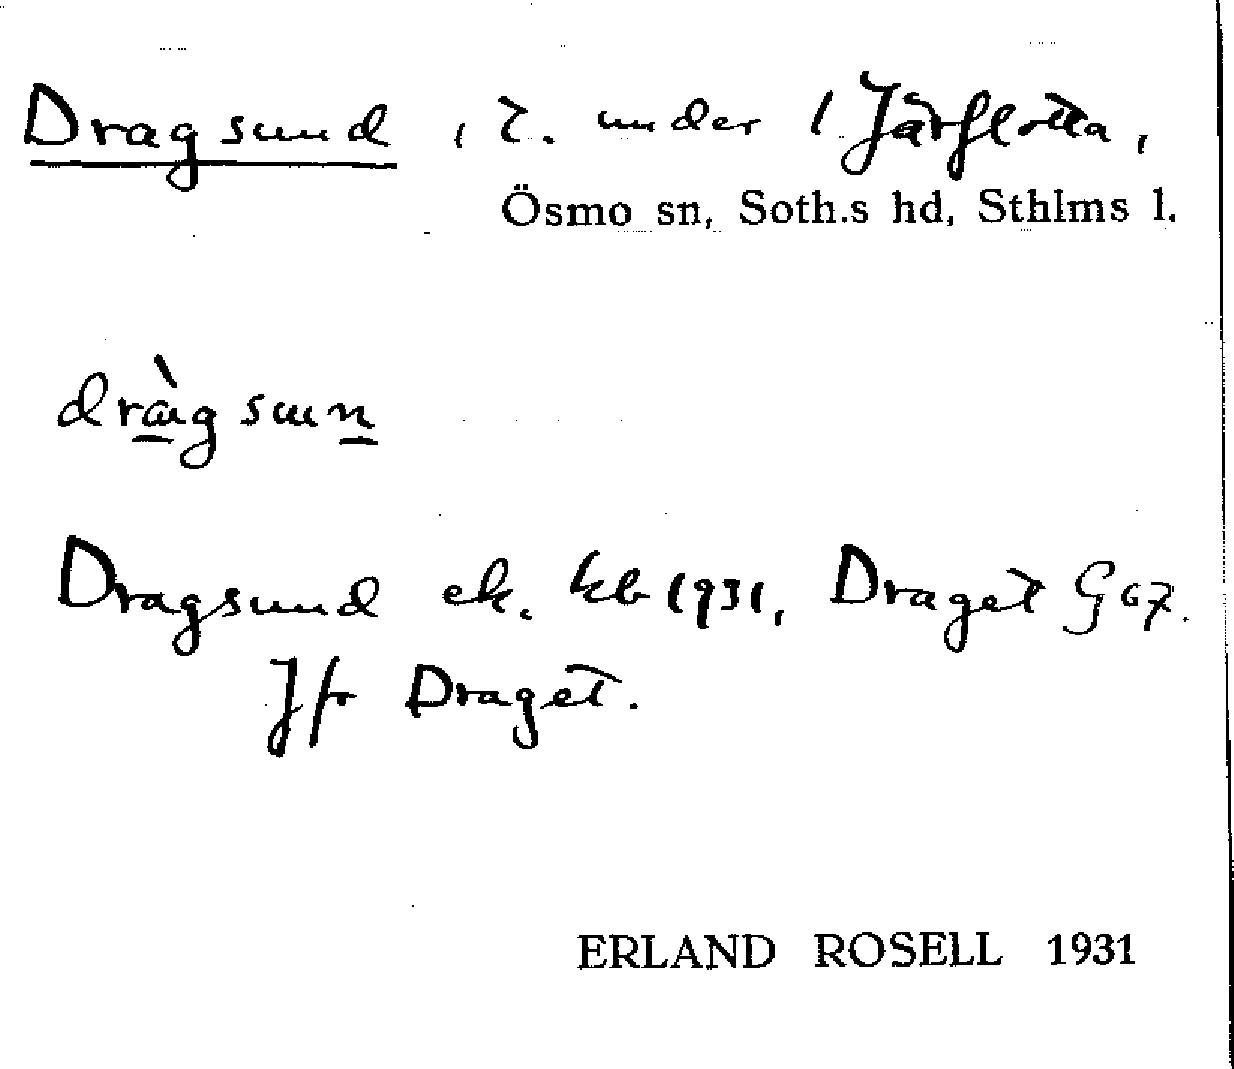 Dragsund, t. under 1 Järflotta,
Ösmo sn, Soth.s hd, Sthlms l.
Dragsund ek. kb 1931, Draget G 67.
Jfr Draget.
ERLAND ROSELL 1931